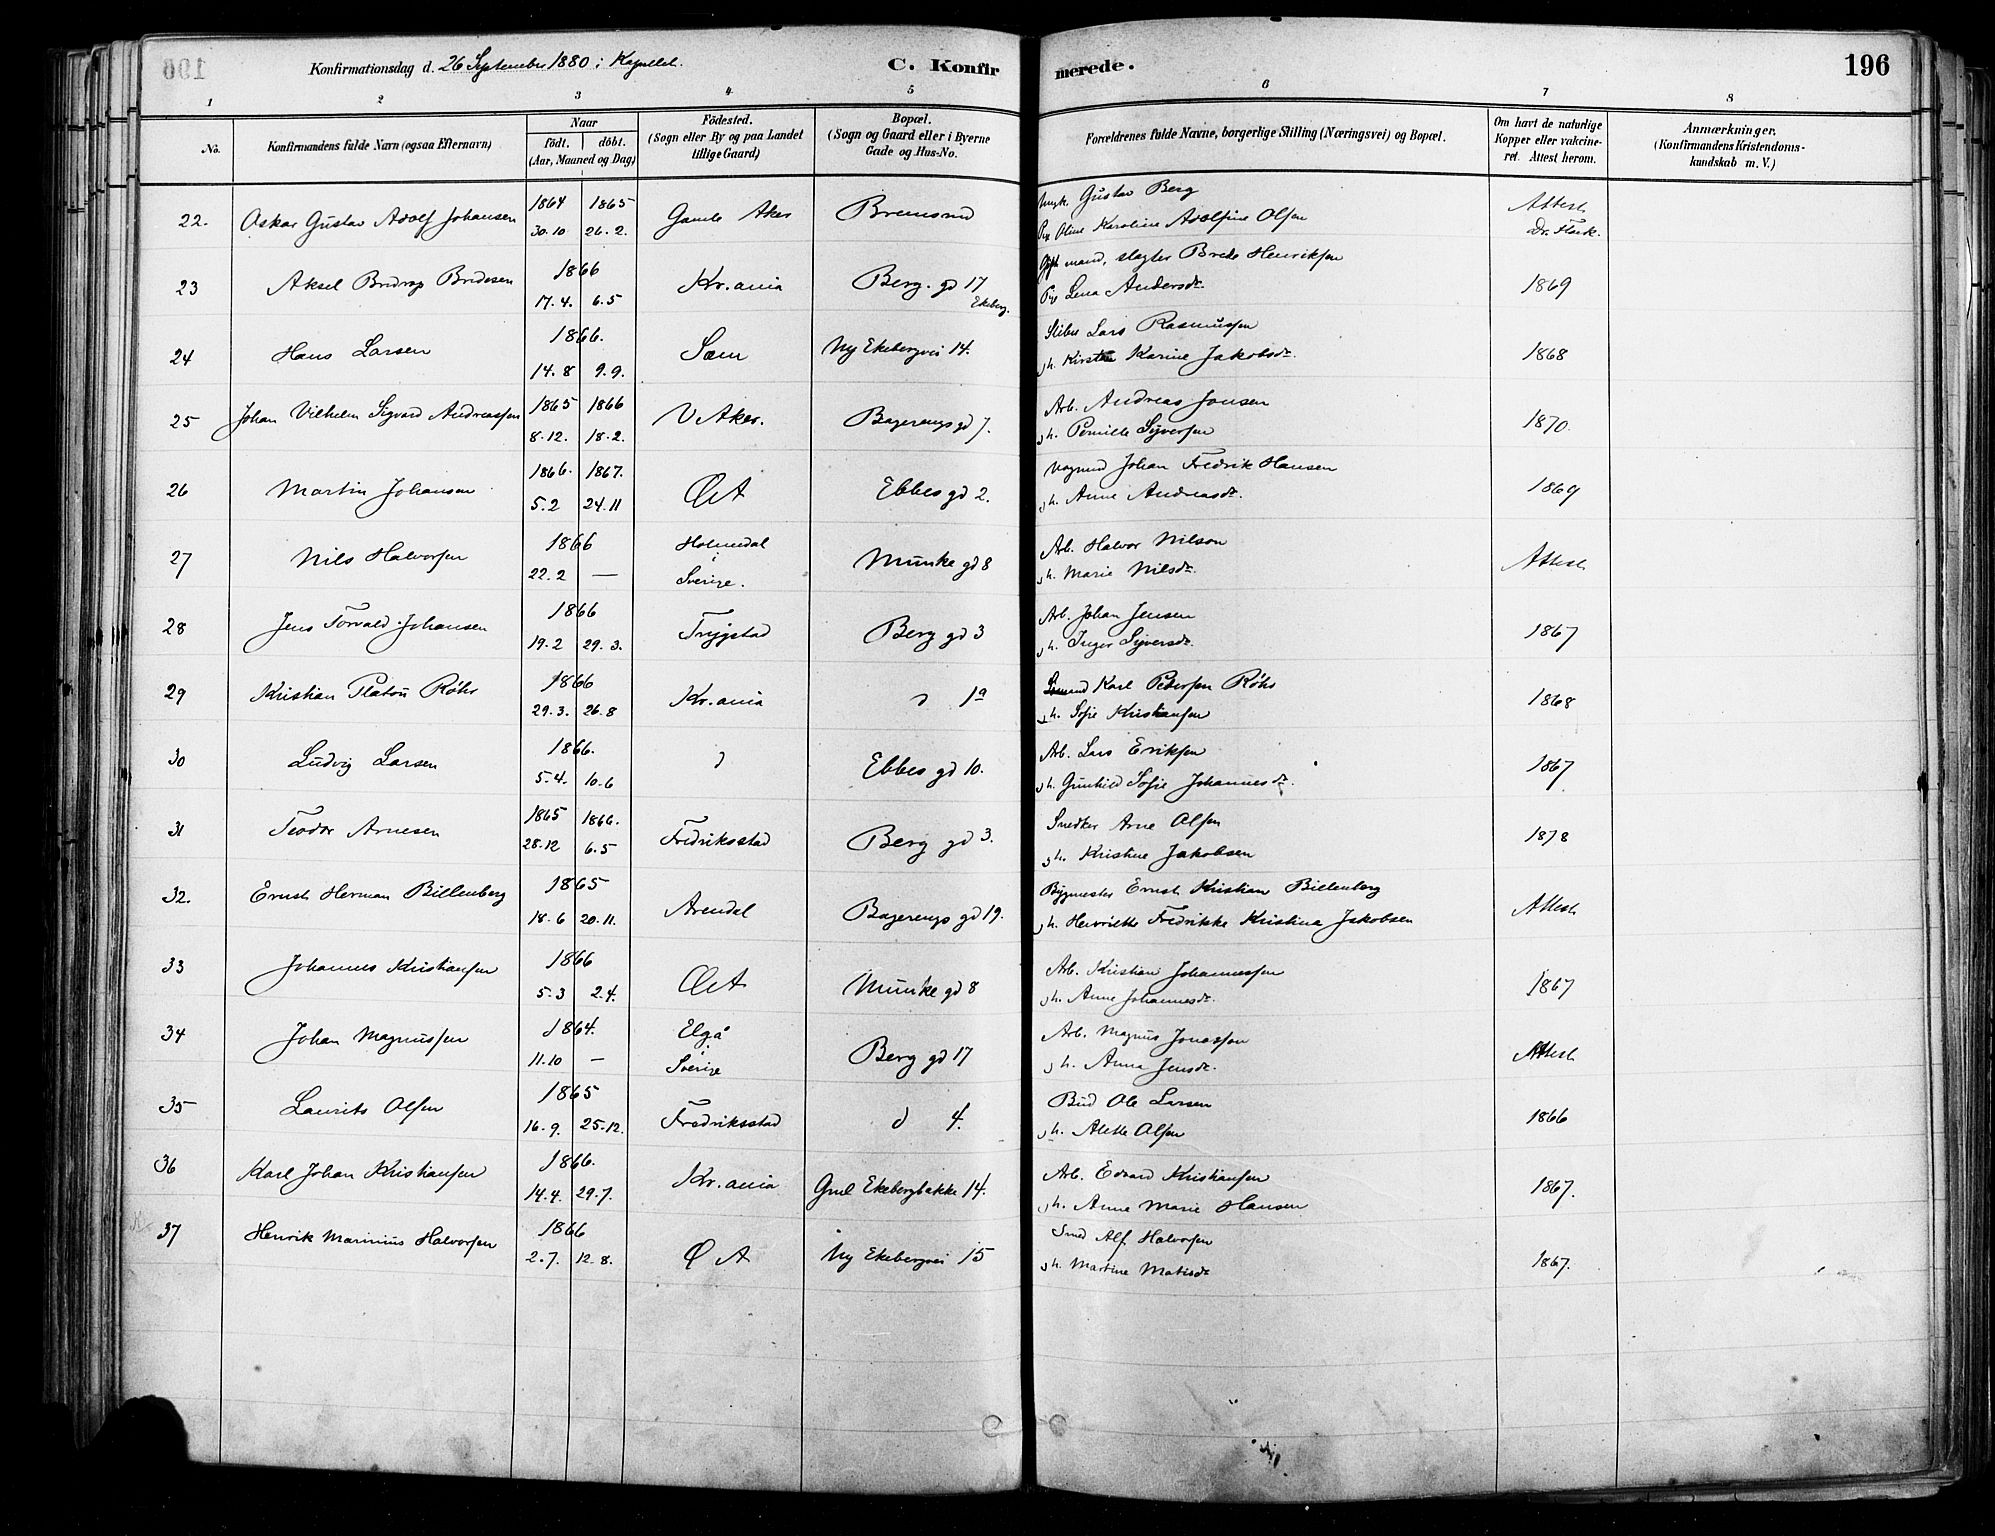 196
Konfirmationsdag d. 26 September 1880 i Kapellet.
C. Konfirmerede.
196
1 2 3 4 5 6 7 8
No.
Konfirmandens fulde Navn (ogsaa Efternavn)
Naar
födt. döbt.
(Aar, Maaned og Dag)
Födested.
(Sogn eller By og paa Landet
tillige Gaard)
Bopæl.
(Sogn og Gaard eller i Byerne
Gade og Hus-No.
Forældrenes fulde Navne, borgerlige Stilling (Næringsvei) og Bopæl.
Om havt de naturlige
Kopper eller vakcine-
ret. Attest herom.
Anmærkninger.
(Konfirmandens Kristendoms-
kundskab m. V.)
22. Oskar Gustav Adolf Johansen 1864 1865 Gamle Aker Bremsrud Gustav Berg Attest
30.10 26.2. Pige Oline Karoline Adolfine Olsen Dr. Flack.
23 Aksel Bredesen 1866 Kr.ania Berg. gd 17 Gift mand, slagter Brede Henriksen 1869
17.4. 6.5 Ekeberg. Pige Lena Andersdr.
24 Hans Larsen 1866. Sem Ny Ekebergvei 14. Sliber Lars Rasmussen 1868
14.8 9.9. h. Kirstine Karine Jakobsdr.
25 Johan Vilhelm Sigvard Andreassen 1865 1866 V Aker. Bagerengs gd 7. Arb. Andreas Jonsen 1870.
8.12. 18.2. h. Pernille Syversen
26 Martin Johansen 1866. 1867. ØA Ebbes gd 2. Vognmd Johan Fredrik Hansen 1869
5.2 24.11 h. Anne Andreasdr.
27 Nils Halvorsen 1866 Holmedal i Sverige. Munke gd 8 Arb. Halvor Nilson Attest
22.2 — h. Marie Nilsdr.
28 Jens Torvald Johansen 1866 Trygstad Berg gd 3 Arb. Johan Jensen 1867
19.2 29.3. h. Inger Syversdr.
29 Kristian Platou Röhr 1866 Kr.ania d 1a Karl Pedersen Röhr 1868
29.3. 26.8 h. Sofie Kristiansen
30 Ludvig Larsen 1866. d Ebbes gd 10. Arb. Lars Eriksen 1867
5.4. 10.6 h. Gunhild Sofie Johannesdr.
31 Teodor Arnesen 1865 1866. Fredriksstad Berg gd 3. Snedker Arne Olsen 1878
28.12 6.5 h. Kristine Jakobsen
32. Ernst Herman Billenberg 1865 Arendal Bagerengs gd 19. Bygmester Ernst Kristian Billenberg Attest
18.6 20.11. h. Henriette Fredrikke Kristina Jakobsen
33 Johannes Kristiansen 1866 ØA Munke gd 8 Arb. Kristian Johannessen 1867
5.3 2.4. h. Anne Johannesdr.
34 Johan Magnussen 1864. Elgå i Sverige Berg gd 17 Arb. Magnus Jonassen Attest
11.10 — h. Anna Jensdr.
35 Laurits Olsen 1865 Fredriksstad d 4. Bud Ole Larsen 1866
16.9. 25.12. h. Alette Olsen
36 Karl Johan Kristiansen 1866. Kr.ania Gml Ekebergbakke 14. Arb. Edvard Kristiansen 1867.
14.4. 29.7. h. Anne Marie Hansen
37 Henrik Marinius Halvorsen 1866 Ø A Ny Ekebergvei 15 Smed Alf Halvorsen 1867.
2.7. 12.8. h. Martine Matisdr